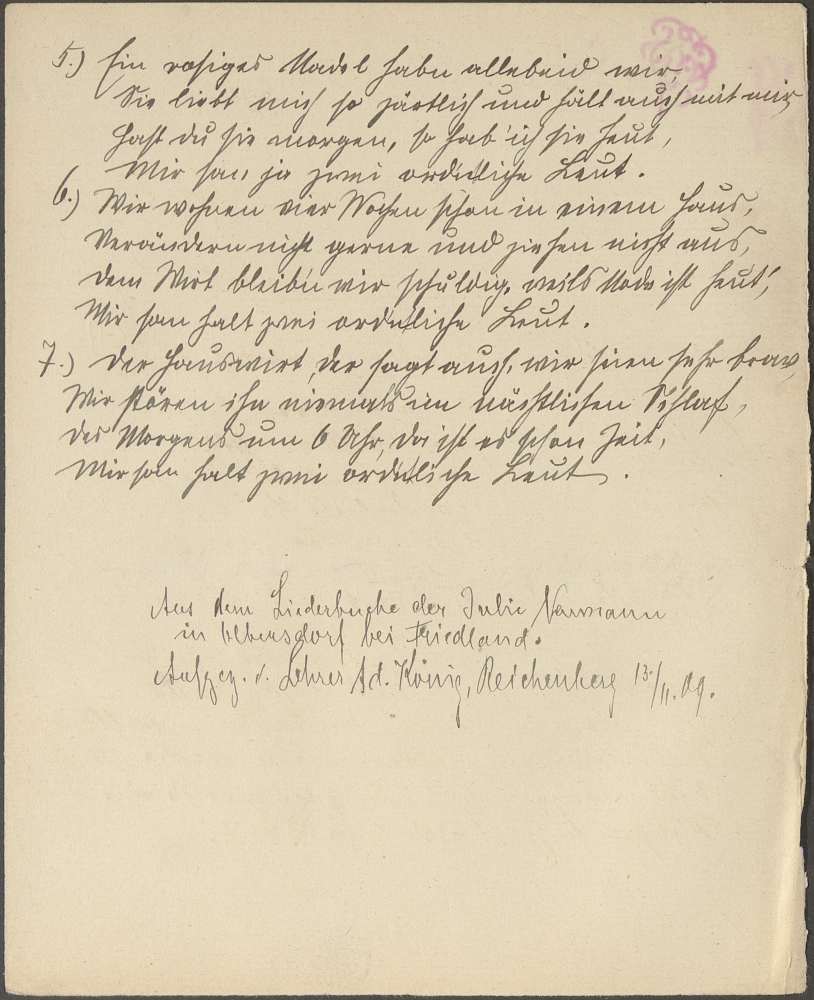 5.) Ein rosiges Madel habn allebeid wir,
Sie liebt mich so zärtlich und hält auch mit mir,
Hast du sie morgen, so hab' ich sie heut,
Mir san ja zwei ordntliche Leut.
6.) Wir wohnen vier Wochen schon in einem Haus,
Verändern nicht gerne und ziehen nicht aus,
Dem Wirt bleibn wir schuldig, weils Mode ist heut',
Mir san halt zwei ordntliche Leut.
7.) Der Hauswirt, der sagt auch, wir seien sehr brav,
Wir stören ihn niemals im nächtlichen Schlaf,
Des Morgens um 6 Uhr, da ist es schon Zeit,
Mir san halt zwei ordntliche Leut.
Aus dem Liederbuche der Julie Naumann
in Olbersdorf bei Friedland.
Aufgez. v. Lehrer Ad. König, Reichenberg 13./11. 09.